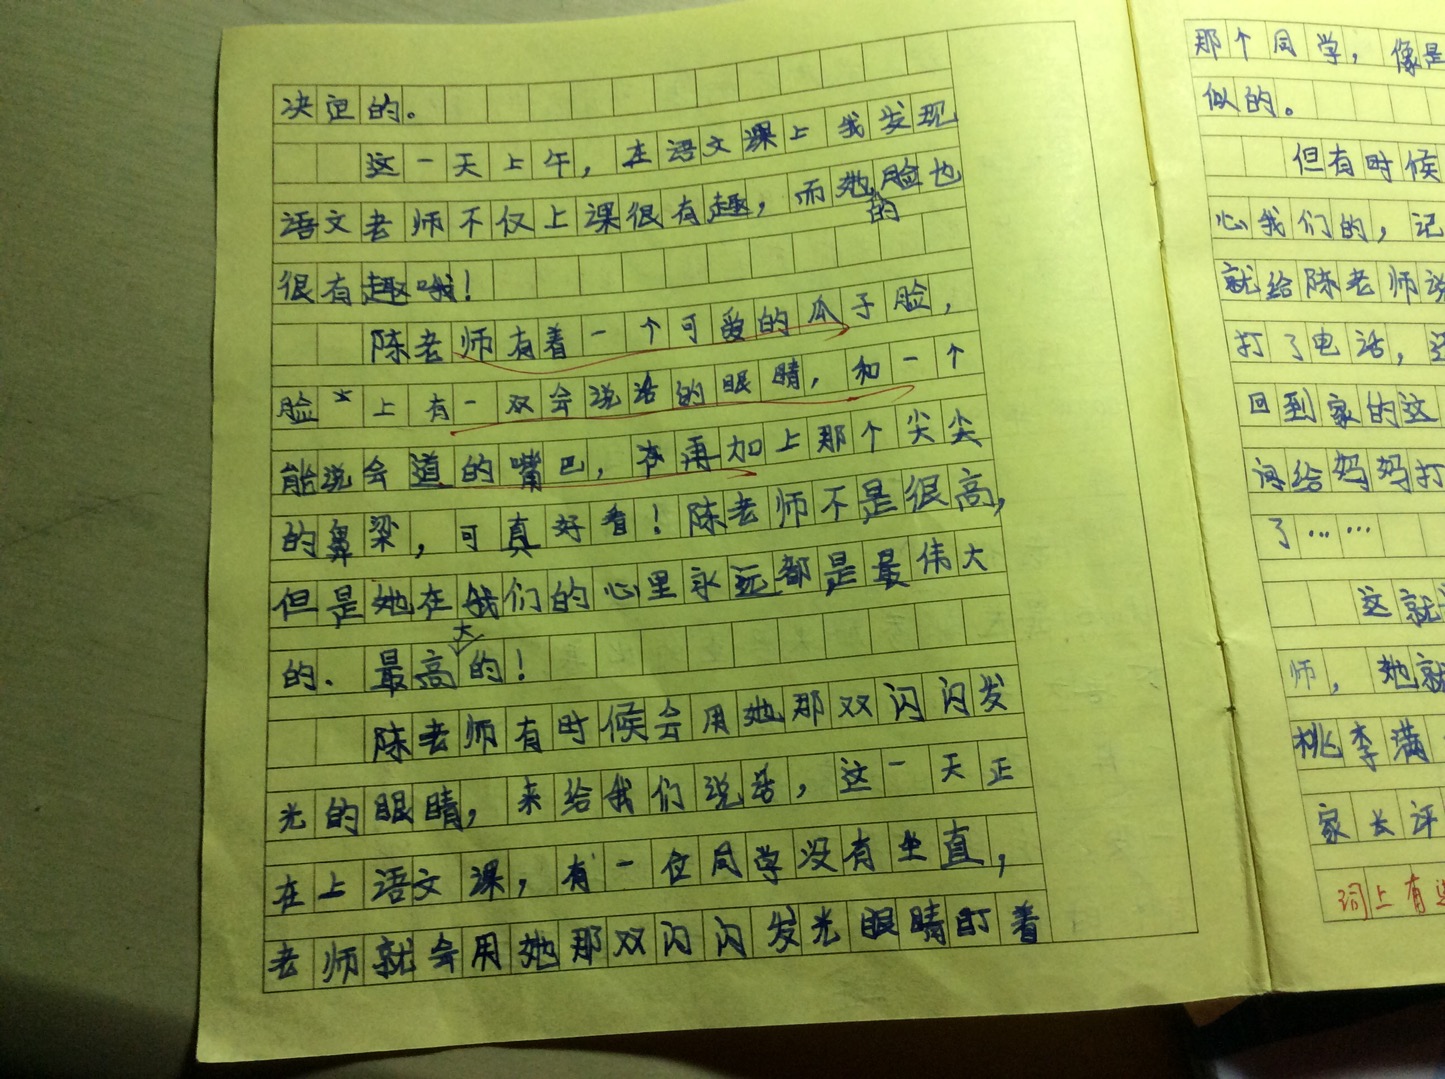 决定的。
这一天上午，在语文课上我发现
语文老师不仅上课很有趣，而她的脸也
很有趣哦！
陈老师有着一个可爱的瓜子脸，
脸上有一双会说话的眼睛，和一个
能说会道的嘴巴，再加上那个尖尖
的鼻梁，可真好看！陈老师不是很高，
但是她在我们的心里永远都是最伟大
的．最高大的！
陈老师有时候会用她那双闪闪发
光的眼睛，来给我们说话，这一天正
在上语文课，有一位同学没有坐直，
老师就会用她那双闪闪发光眼睛盯着
那个同学，像是
似的。
但有时候
心我们的，记
就给陈老师说
打了电话，
回到家的这
词给妈妈打
了……
这就
师，她就
桃李满
家长评
词上有